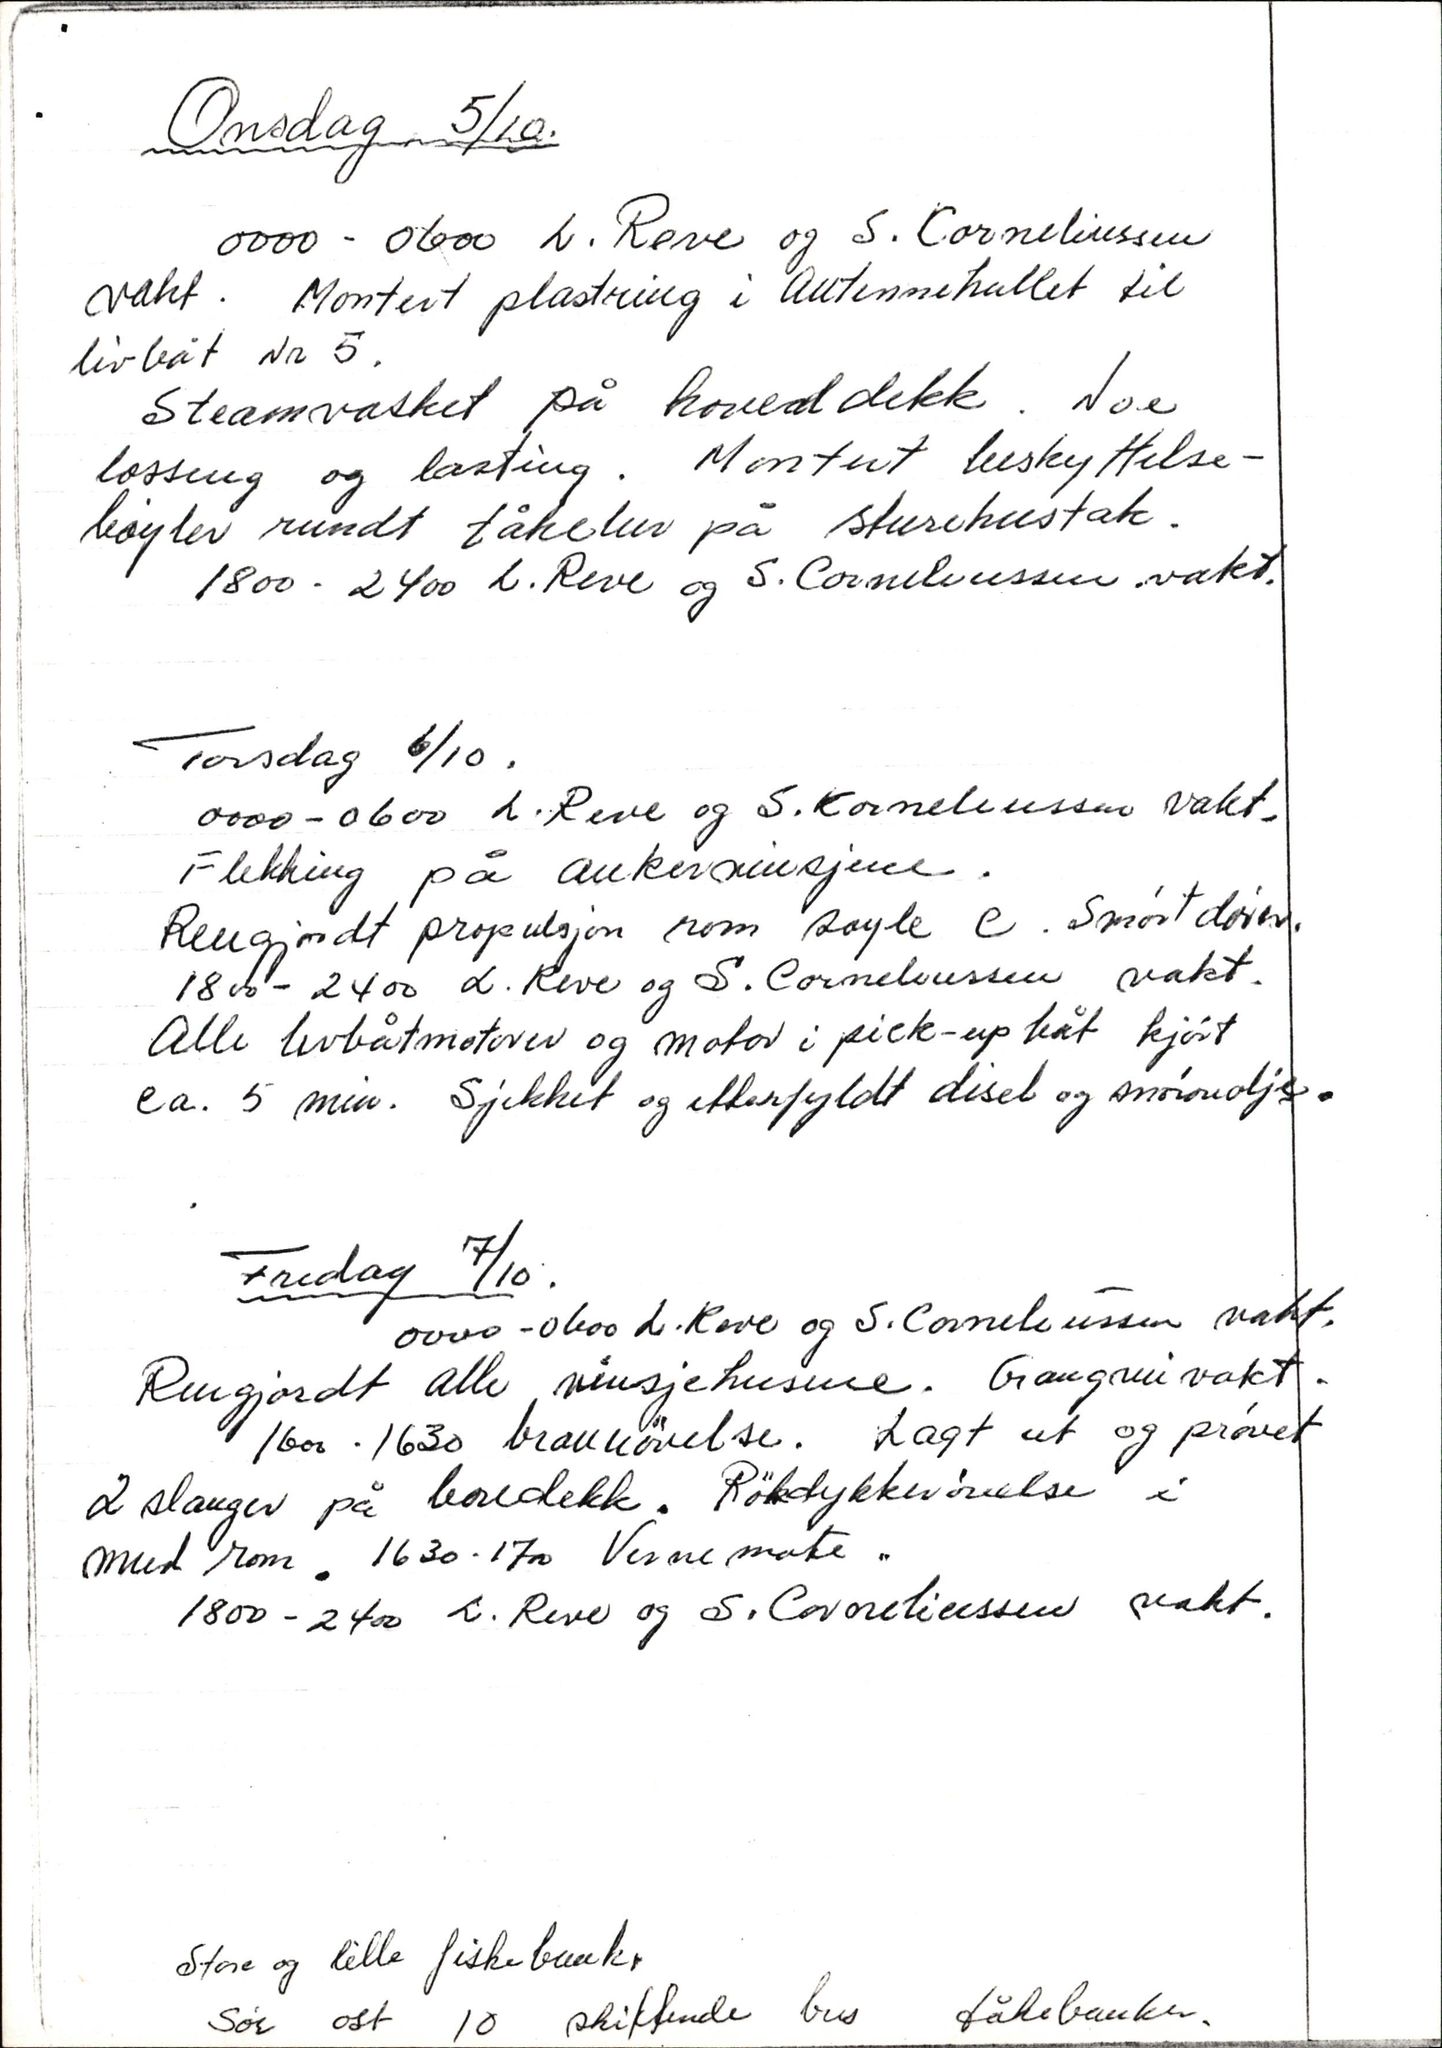 Onsdag 5/10.
0000 - 0600 L. Reve og S. Corneliussen
vakt. Montert plastring i Antennehullet til
livbåt Nr 5.
Steamvasket på hoveddekk. Noe
lossing og lasting. Montert beskyttelse-
bøyler rundt tåkelur på sturehustak.
1800 - 2400 L. Reve og S. Corneliussen vakt.
Torsdag 6/10.
0000 - 0600 L. Reve og S. Korneliussen vakt.
Flekking på ankervinsjene.
Rengjordt propulsjon rom søyle C. Smørt dører.
1800 - 2400 L. Reve og S. Corneliussen vakt.
Alle livbåtmotorer og motor i pick-up båt kjørt
ca. 5 min. Sjekket og etterfyldt disel og smøreolje.
Fredag 7/10.
0000 - 0600 L. Reve og S. Corneliussen vakt.
Rengjordt alle vinsjehusene. Gangveivakt.
1600 - 1630 brannövelse. Lagt ut og prøvet
2 slanger på boredekk. Rökdykkerövelse i
mud rom. 1630 - 1700 Vernemøte.
1800 - 2400 L. Reve og S. Corneliussen vakt.
Store og lille fiskebank.
Sør ost 10 skiftende bris tåkebanker.